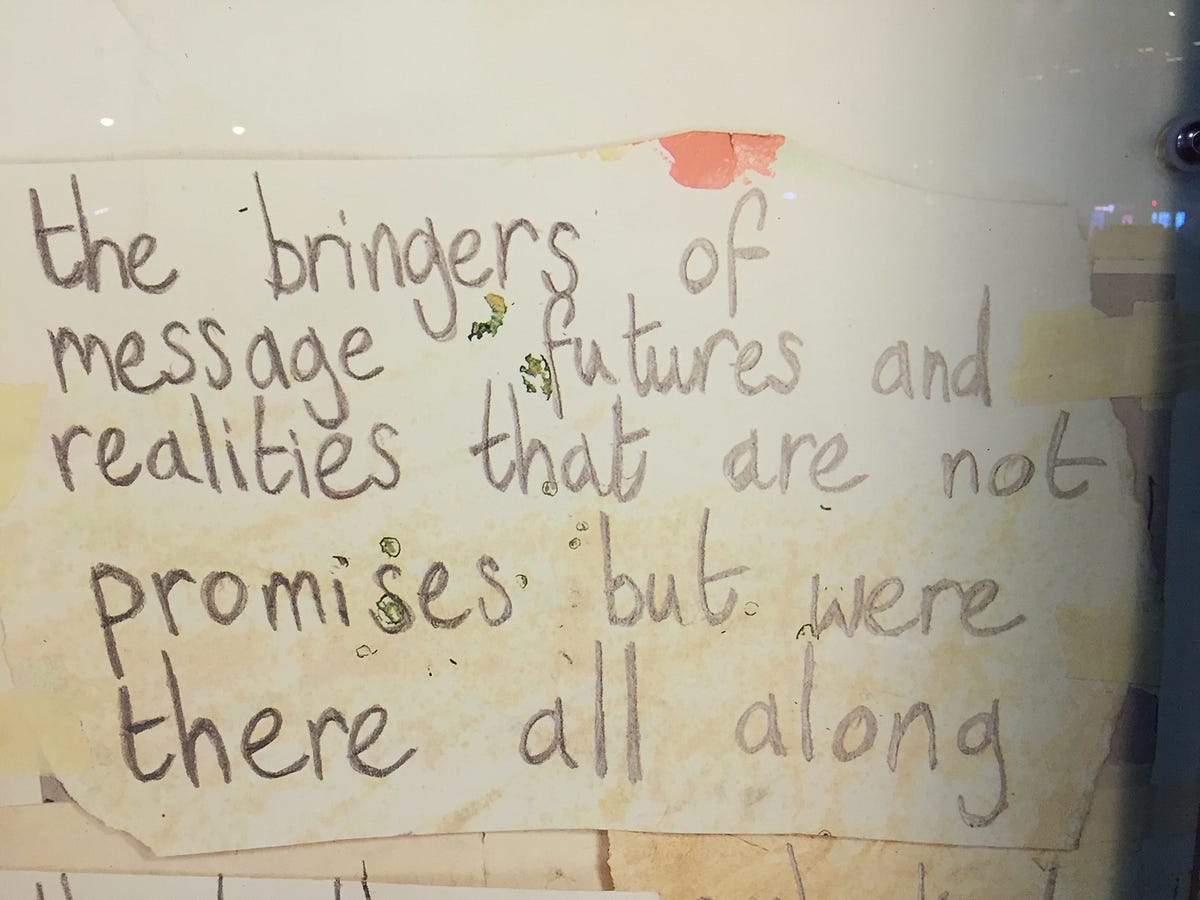 the bringers of
message futures and
realities that are not
promises but were
there all along